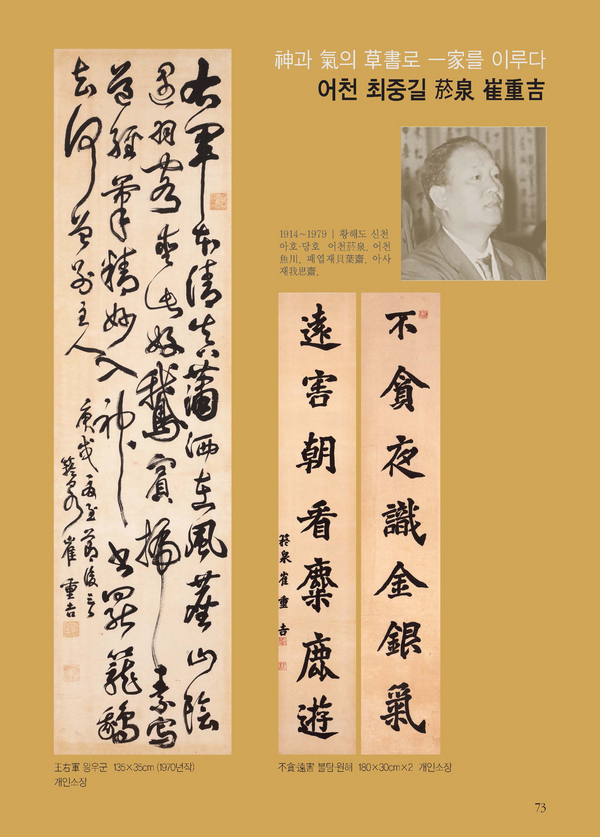 神과 氣의 草書로 一家를 이루다
어천 최중길 菸泉 崔重吉
1914~1979 | 황해도 신천
아호·당호 어천菸泉, 어천
魚川, 패엽재貝葉齋, 아사
재我思齋.
右軍本清真瀟洒在風塵山陰
遇羽客愛此好鵝賓掃素寫
道經筆精妙入神書罷籠鵝
去何曾別主人
庚戌夏至節後
菸泉 崔重吉
不貪夜識金銀氣
遠害朝看麋鹿遊
菸泉崔重吉
王右軍 왕우군 135×35cm (1970년작)
개인소장
不貪·遠害 불탐·원해 180×30cm×2 개인소장
73